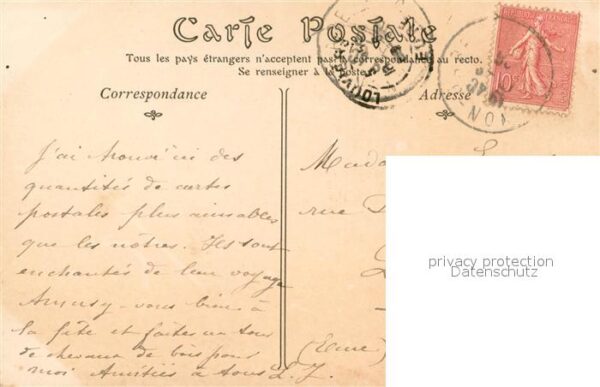 Carte Postale
Tous les pays étrangers n'acceptent pas la correspondance au recto.
Se renseigner à la poste.
Correspondance
Adresse
RÉPUBLIQUE FRANÇAISE
10c
LOUVIERS
EURE
NON
J'ai trouvé ici des
quantités de cartes
postales plus aimables
que les nôtres. Ils sont
enchantés de leur voyage
Amusez-vous bien à
la fête et faites un tour
de chevaux de bois pour
moi Amitiés à tous L. J.
Mada
rue
(Eure)
privacy protection
Datenschutz